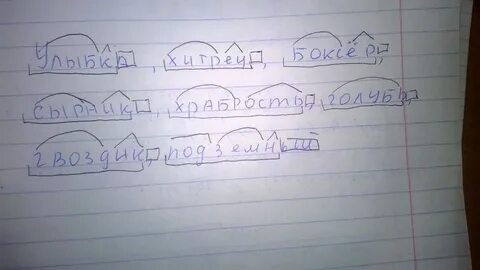 Улыбка, хитрец, боксёр,
сырник, храбрость, голубь,
гвоздик, подземный